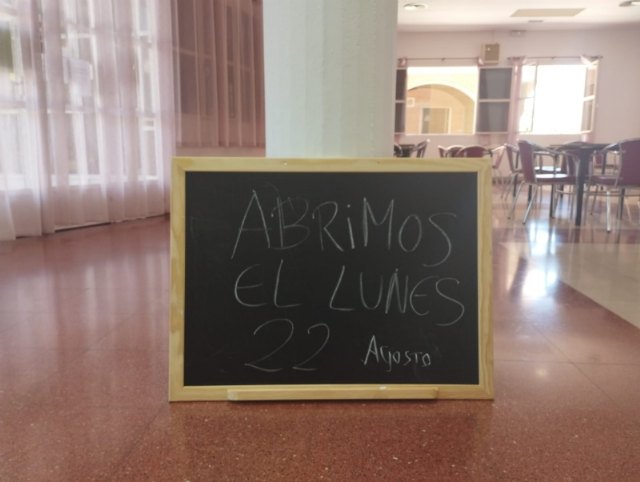 ABRiMOS
EL LUNES
22 Agosto